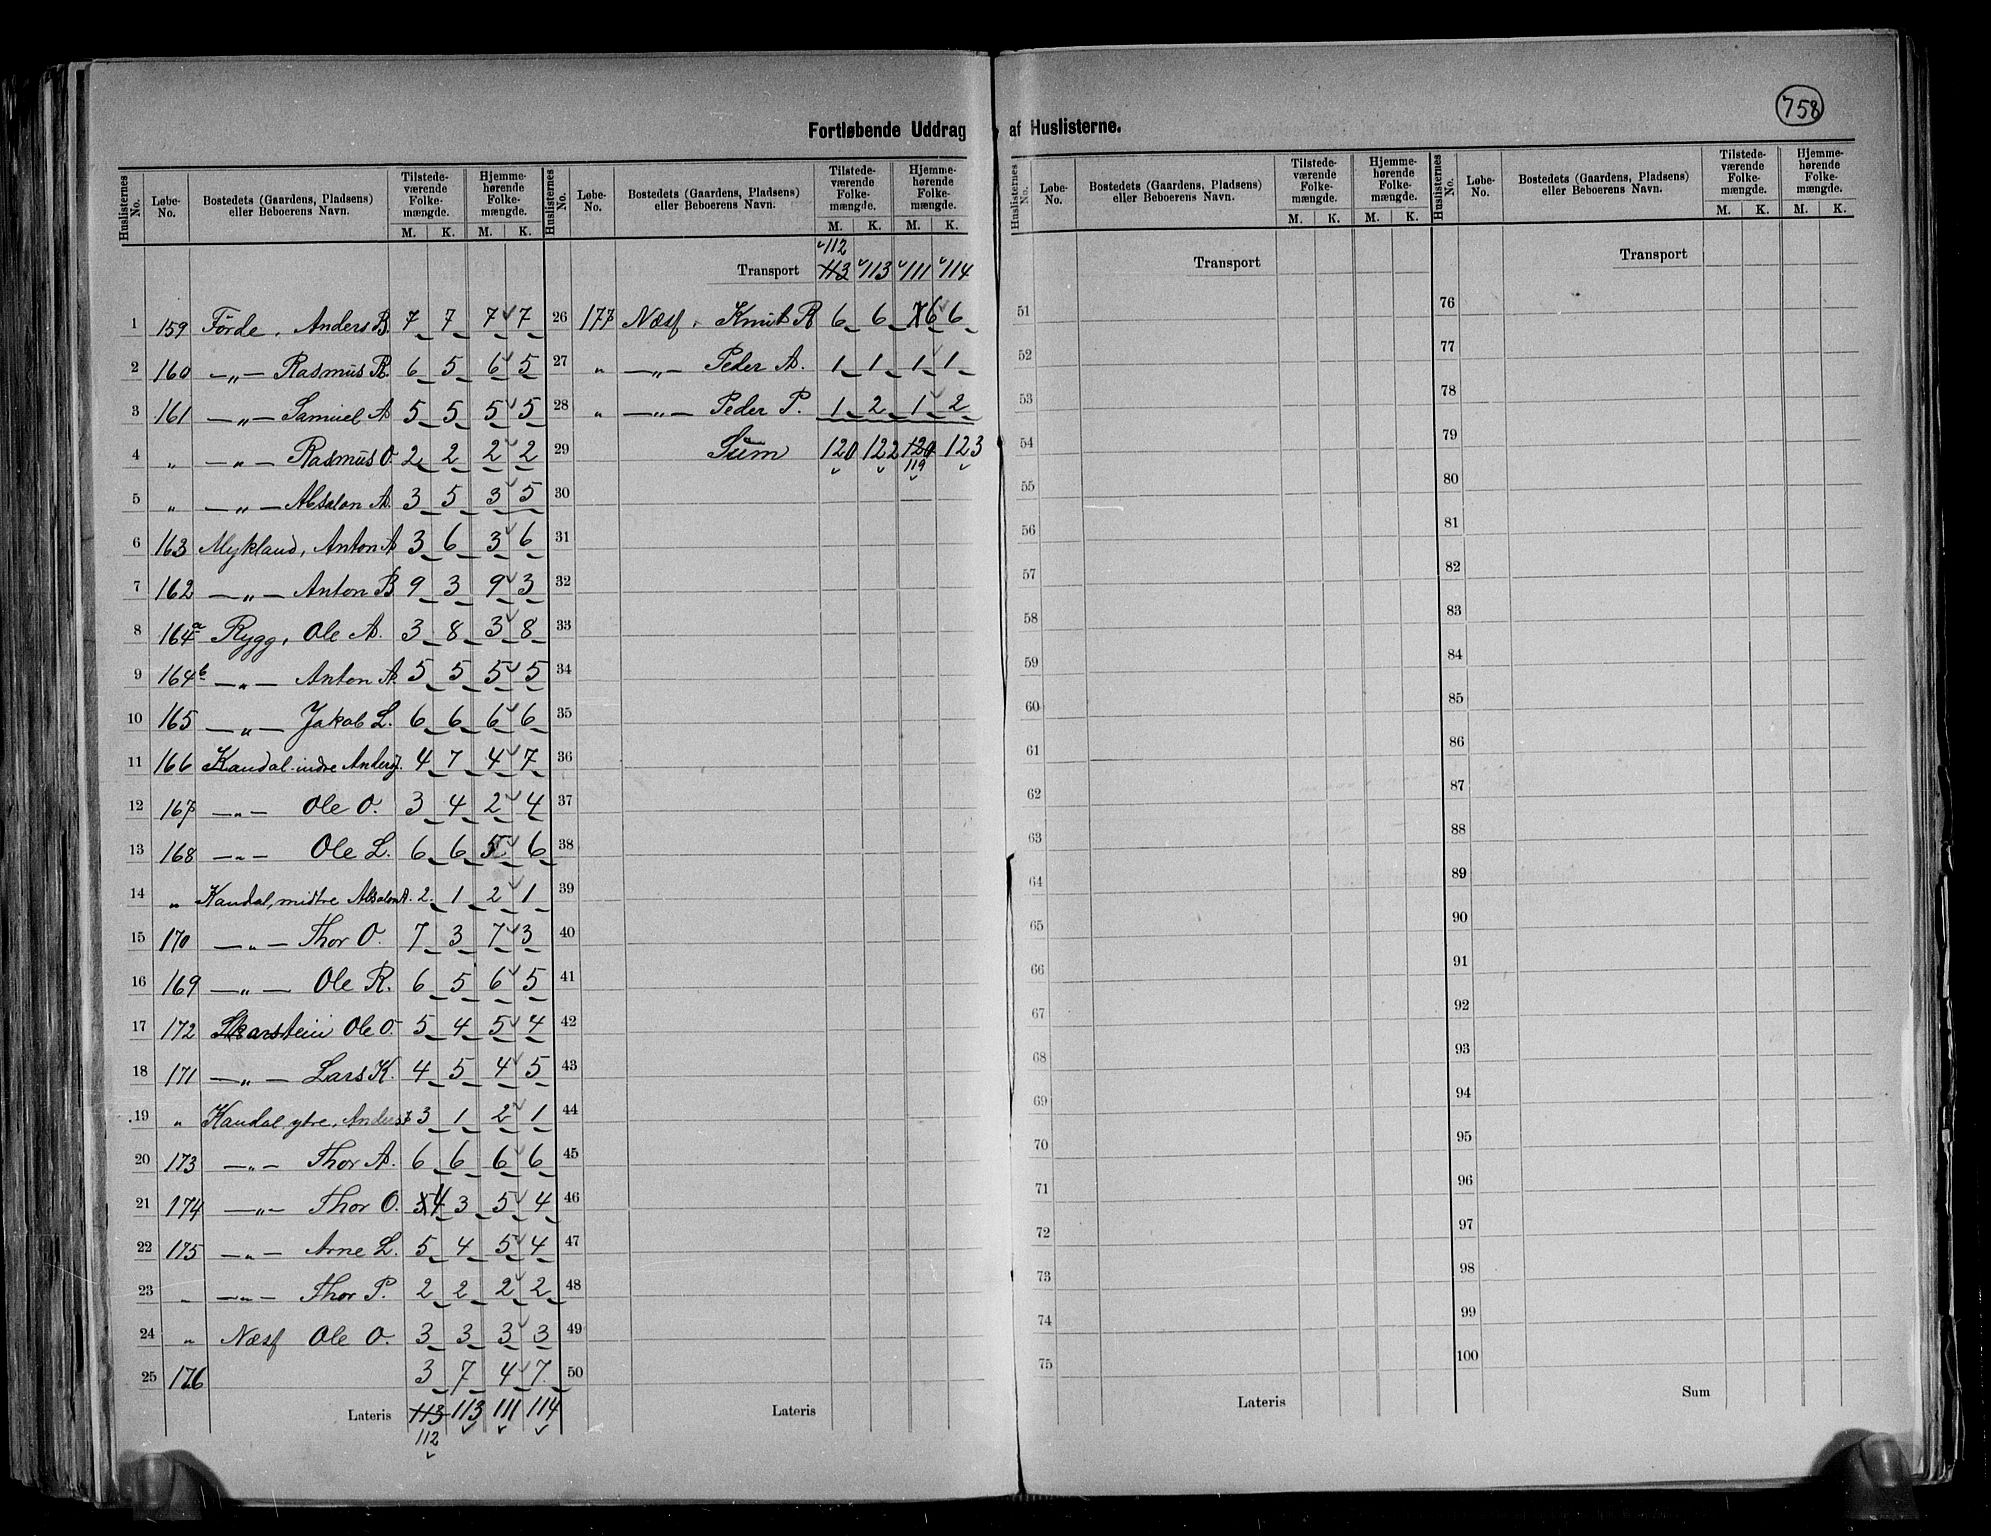 758
Fortløbende Uddrag af Huslisterne.
Huslisternes No. Løbe-No. Bostedets (Gaardens, Pladsens) eller Beboerens Navn. Tilstedeværende Folkemængde. M. K. Hjemmehørende Folkemængde. M. K.
1 159 Förde, Anders B. 7 7 7 7
2 160 —„— Rasmus R. 6 5 6 5
3 161 —„— Samuel A 5 5 5 5
4 „ —„— Rasmus O. 2 2 2 2
5 „ —„— Absalon A. 3 5 3 5
6 163 Mykland, Anton A 3 6 3 6
7 162 —„— Anton B 9 3 9 3
8 164a Rygg, Ole A. 3 8 3 8
9 164b —„— Anton A. 5 5 5 5
10 165 —„— Jakob L. 6 6 6 6
11 166 Kandal indre Anders J. 4 7 4 7
12 167 —„— Ole O. 3 4 2 4
13 168 —„— Ole L. 6 6 5 6
14 „ Kandal, midtre Absalon A. 2 1 2 1
15 170 —„— Thor O. 7 3 7 3
16 169 —„— Ole R. 6 5 6 5
17 172 Skarstein Ole O. 5 4 5 4
18 171 —„— Lars K. 4 5 4 5
19 „ Kandal ytre, Anders 3 1 2 1
20 173 —„— Thor A. 6 6 6 6
21 174 —„— Thor O. 5 4 3 5 4
22 175 —„— Arne L. 5 4 5 4
23 „ —„— Thor P. 2 2 2 2
24 „ Næsf Ole O. 3 3 3 3
25 176 3 7 4 7
Lateris 113 113 111 114
112
Huslisternes No. Løbe-No. Bostedets (Gaardens, Pladsens) eller Beboerens Navn. Tilstedeværende Folkemængde. M. K. Hjemmehørende Folkemængde. M. K.
112
Transport 113 113 111 114
26 177 Næsf, Knut R 6 6 7 6 6
27 „ —„— Peder A. 1 1 1 1
28 „ —„— Peder P. 1 2 1 2
29 Sum 120 122 120 123
119
30
31
32
33
34
35
36
37
38
39
40
41
42
43
44
45
46
47
48
49
50
Lateris
Huslisternes No. Løbe-No. Bostedets (Gaardens, Pladsens) eller Beboerens Navn. Tilstedeværende Folkemængde. M. K. Hjemmehørende Folkemængde. M. K.
Transport
51
52
53
54
55
56
57
58
59
60
61
62
63
64
65
66
67
68
69
70
71
72
73
74
75
Lateris
Huslisternes No. Løbe-No. Bostedets (Gaardens, Pladsens) eller Beboerens Navn. Tilstedeværende Folkemængde. M. K. Hjemmehørende Folkemængde. M. K.
Transport
76
77
78
79
80
81
82
83
84
85
86
87
88
89
90
91
92
93
94
95
96
97
98
99
100
Sum